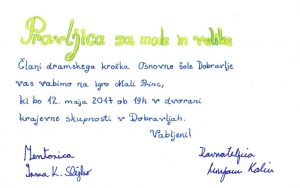 Pravljica za male in velike
Člani dramskega krožka Osnovne šole Dobravlje
vas vabimo na igro Mali Princ,
ki bo 12. maja 2017 ob 19h v dvorani
krajevne skupnosti v Dobravljah.
Vabljeni!
Mentorica
Ravnateljica
Irma K.